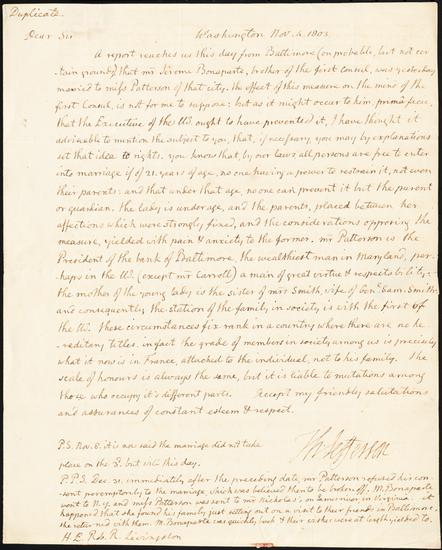 Duplicate.
Dear Sir Washington Nov. 4. 1803.
A report reaches us this day from Baltimore (on probable, but not cer-
tain grounds) that mr Jerome Bonaparte, brother of the first Consul, was yesterday
married to miss Patterson of that city. the effect of this measure on the mind of the
first Consul, is not for me to suppose: but as it might occur to him prima facie,
that the Executive of the US. ought to have prevented it, I have thought it
adviseable to mention the subject to you, that if necessary, you may by explanations
set that idea to rights. you know that by our laws all persons are free to enter
into marriage if of 21. years of age, no one having a power to restrain it, not even
their parents: and that under that age, no one can prevent it but the parent
or guardian. the lady is under age, and the parents, placed between her
affections which were strongly fixed, and the considerations opposing the
measure, yielded with pain & anxiety to the former. mr Patterson is the
President of the bank of Baltimore, the wealthiest man in Maryland, per-
haps in the US. (except mr Carroll) a man of great virtue & respectability:
the mother of the young lady is the sister of mrs Smith, wife of Genl. Sam. Smith;
and consequently the station of the family in society is with the first of
the US. These circumstances fix rank in a country where there are no he-
-reditary titles. in fact the grade of members in society among us is precisely
what it now is in France, attached to the individual, not to his family. The
scale of honours is always the same, but it is liable to mutations among
those who occupy it's different parts. Accept my friendly salutations
and assurances of constant esteem & respect.
Th: Jefferson
P.S. Nov. 8. it is now said the marriage did not take
place on the 3d. but will this day.
P.P.S. Dec. 21. immediately after the preceding date, mr Patterson refused his con-
sent peremptorily to the marriage, which was believed then to be broken off. M. Bonaparte
went to N.Y. and miss Patterson was sent to mr Nicholas's on James river in Virginia. it
happened that she found his family just setting out on a visit to their friends in Baltimore.
she returned with them. M. Bonaparte was quickly back & their wishes were at length yielded to.
H. E. R. R. Livingston